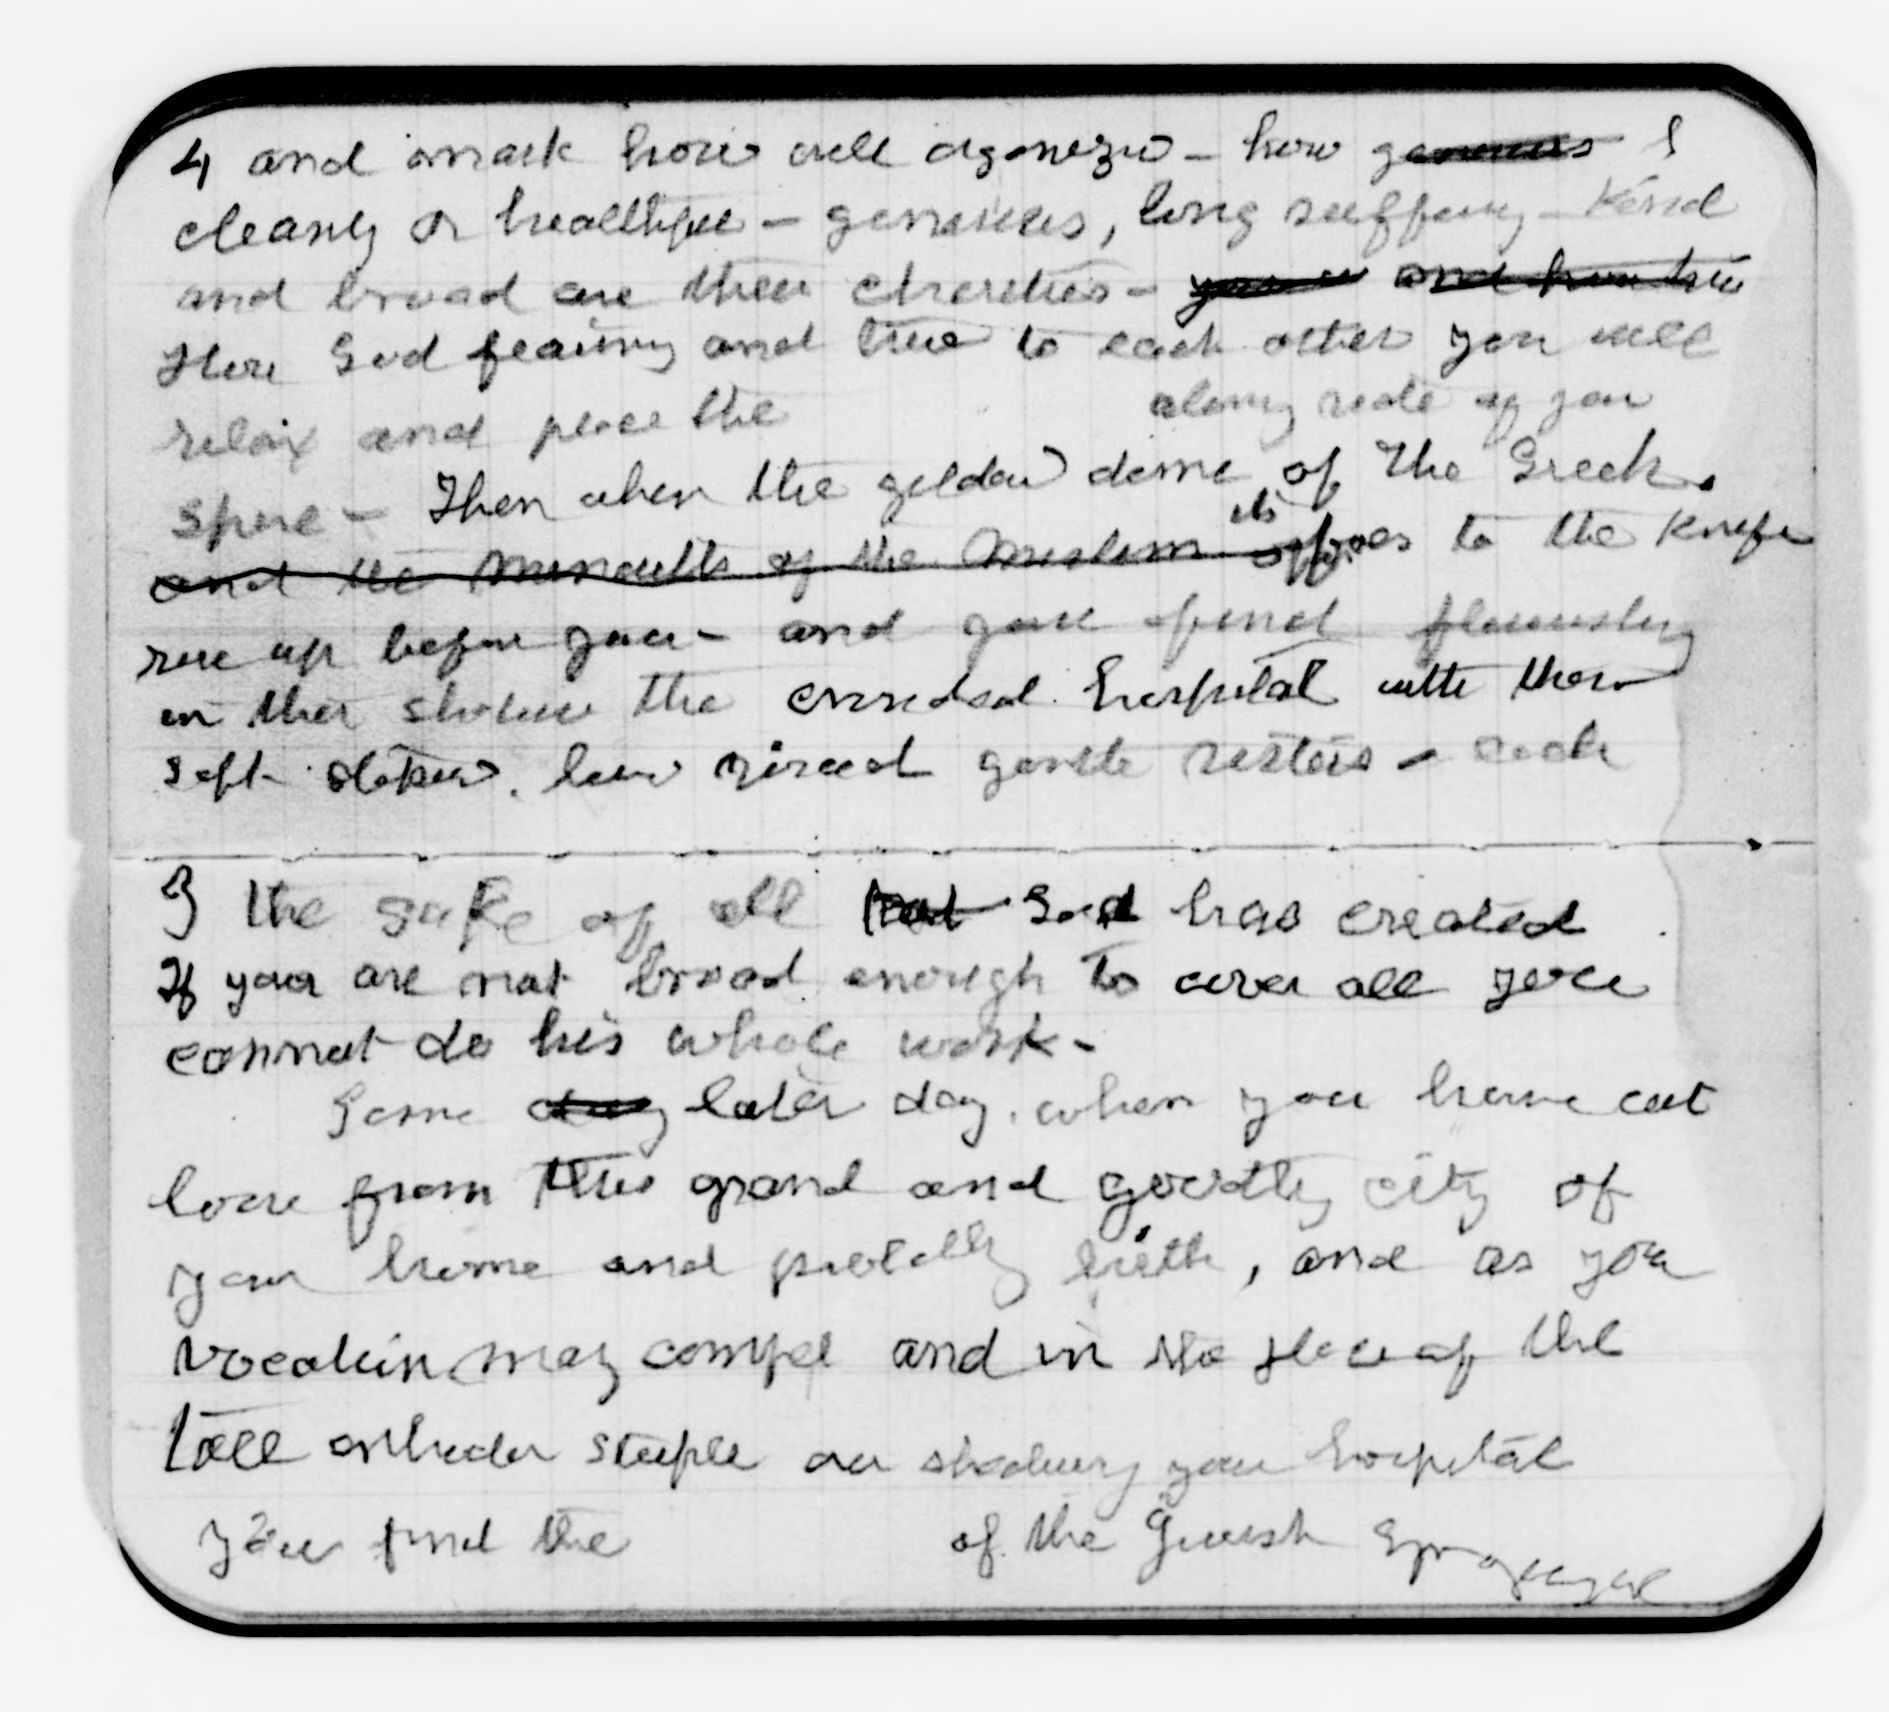 4 and mark how well organized - how generous &
cleanly or healthful - generous, long suffering - Kind
and broad are their charities - and
Here God fearing and true to each other you will
relax and place the along side of your
spire - Then when the golden dome of the Greek.
and the minaretts of the Moslem its foes to the Knife
rise up before you - and you find flourishing
in their shadow the crusdeal hospital with their
soft low voiced gentle sisters - each
3 the sake of all that God has created
If you are not broad enough to cover all you
cannot do his whole work -
Some day later day. when you have cut
loose from this grand and goodly city of
your home and probably birth, and as your
vocation may compel and in the place of the
tall steeple over shadowing your hospital
you find the of the Jewish Synagogue